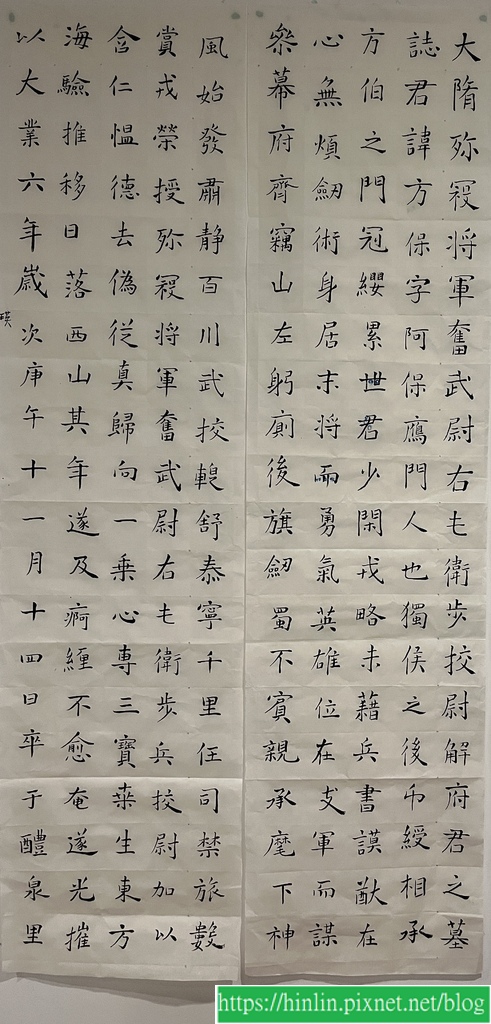 大隋殄寇將軍奮武尉右屯衛步挍尉解府君之墓
誌君諱方保字阿保鴈門人也獨侯之後印綬相承
方伯之門冠纓累世君少閑戎略未藉兵書謨猷在
心無煩劒術身居末將而勇氣英雄位在支軍而謀
叅幕府齊竊山左躬廁後旗劒蜀不賓親承麾下神
風始發肅静百川武挍舒泰寧千里任司禁旅數
賞戎榮授殄寇將軍奮武尉右屯衛步兵挍尉加以
含仁愠德去偽從真歸向一乗心專三寶業生東方
海驗推移日落西山其年遂及痾纏不愈奄遂光摧
以大業六年歲次庚午十一月十四日卒于醴泉里
https://hinlin.pixnet.net/blog